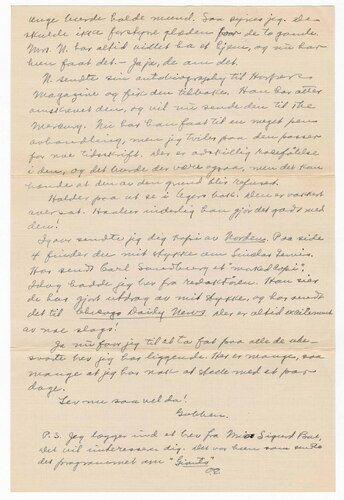 unge burde holde mund. Saa synes jeg. De
skulde ikke forstyrre glæden for de to gamle.
Mrs. N. har altid villet ha et hjem, og nu har
hun faat det – Jaja, de om det.
N. sendte sin autobiography til Harpers
Magazine og fik den tilbake. Han har atter
omskrevet den, og vil nu sende den til The
Mercury. Nu har han faat til en meget pen
avhandling, men jeg tviler paa den passer
for noe tidsskrift. Der er adskillig rosefølelse
i den, og det burde der være ogsaa, men det kan
hænde at den av den grund blir refused.
Holder paa at se i bok. Den er vakkert
oversat. Haaber inderlig han gjør det godt med
den!
Igaar sendte jeg dig kopi av Norden. Paa side
4 finder du mit stykke om Sinclair Lewis.
Har sendt Carl Sandburg et "marked kopi".
Idag hadde jeg brev fra redaktøren. Han sier
de har gjort utdrag av mit stykke, og har sendt
det til Chicago Daily News. Der er altid excitement
av noe slags!
Ja nu faar jeg ta fat paa alle de ube-
svarte brev jeg har liggende. Her er mange, saa
mange at jeg har nok at stelle med et par
dage.
Lev nu saa vel da!
P.S. Jeg lægger ind et brev fra Miss Sigrid
det vil interessere dig. Det var hun som sendte
det programmet om "Giants"